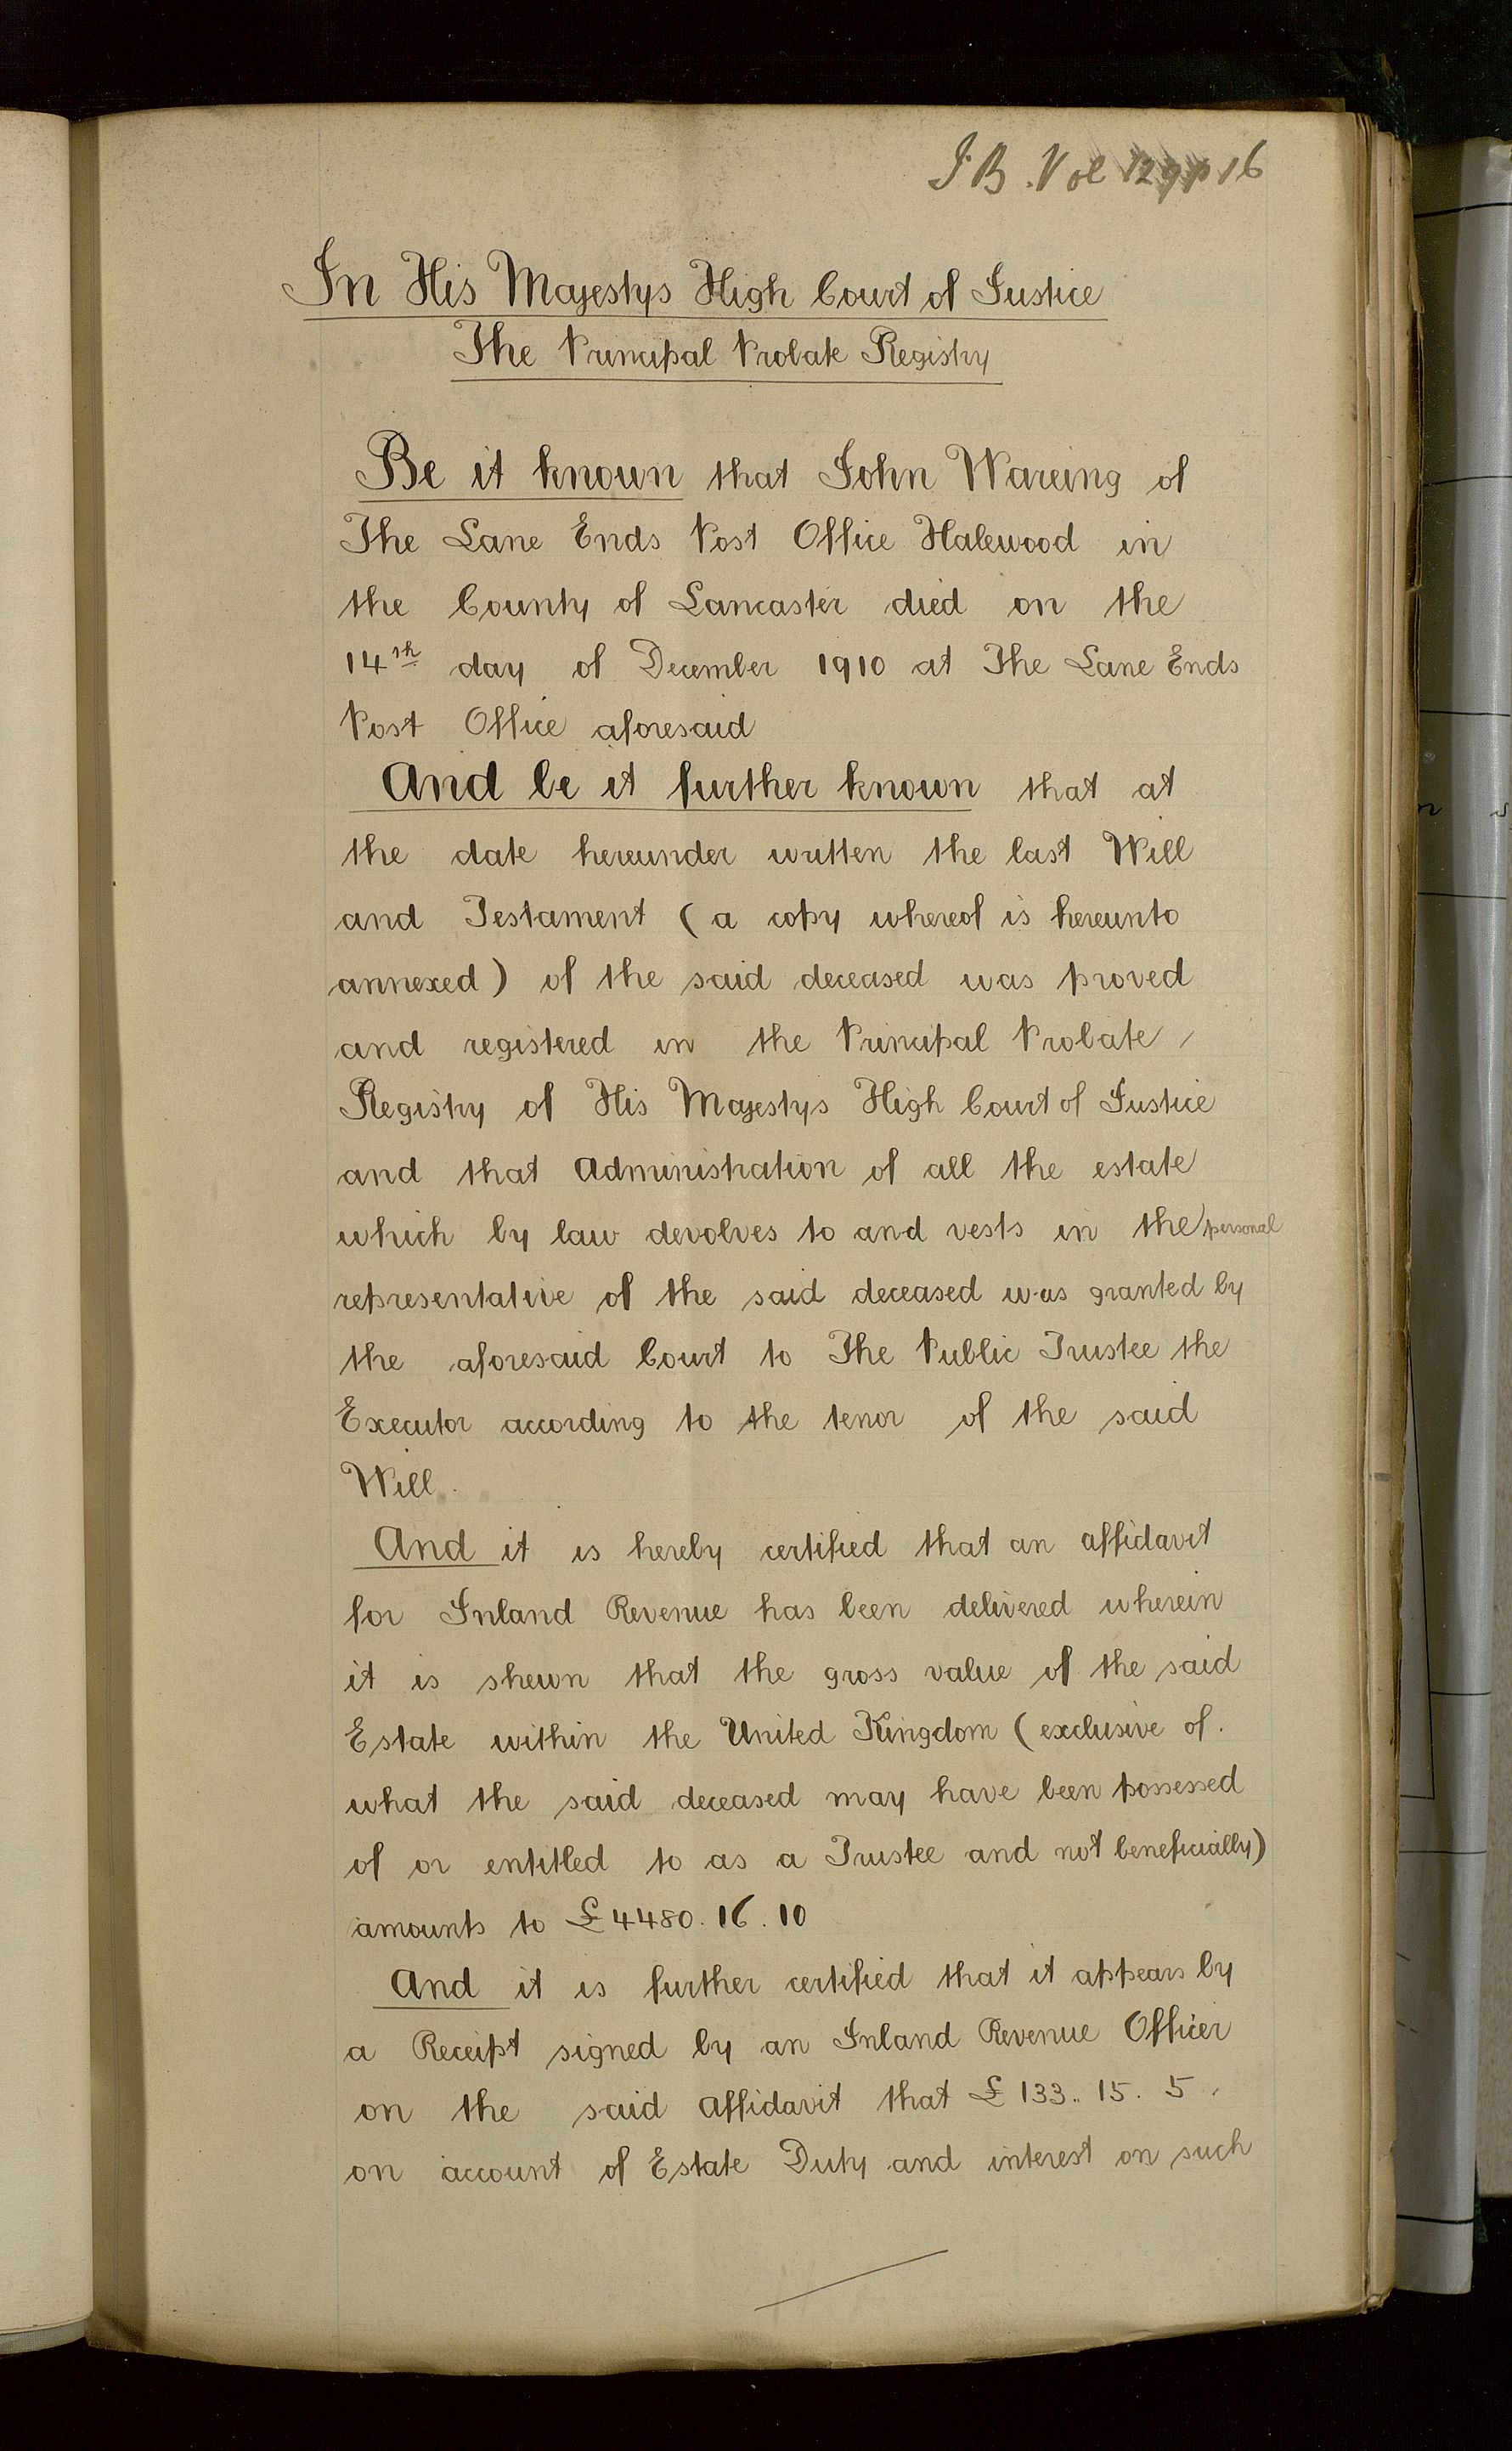 J.B. Vol 129 p 16
In His Majestys High Court of Justice
The Principal Probate Registry
Be it known that John Wareing of
The Lane Ends Post Office Halewood in
the County of Lancaster died on the
14th day of December 1910 at The Lane Ends
Post Office aforesaid
And be it further known that at
the date hereunder written the last Will
and Testament (a copy whereof is hereunto
annexed) of the said deceased was proved
and registered in the Principal Probate
Registry of His Majestys High Court of Justice
and that Administration of all the estate
which by law devolves to and vests in the personal
representative of the said deceased was granted by
the aforesaid Court to The Public Trustee the
Executor according to the tenor of the said
Will.
And it is hereby certified that an affidavit
for Inland Revenue has been delivered wherein
it is shewn that the gross value of the said
Estate within the United Kingdom (exclusive of
what the said deceased may have been possessed
of or entitled to as a Trustee and not beneficially)
amounts to £4480. 16. 10
And it is further certified that it appears by
a Receipt signed by an Inland Revenue Officer
on the said affidavit that £133.. 15. 5.
on account of Estate Duty and interest on such